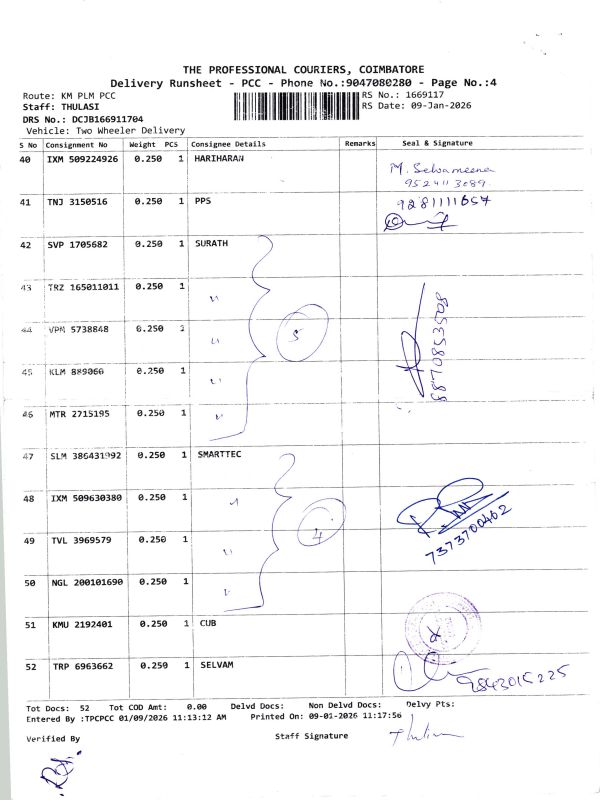 THE PROFESSIONAL COURIERS, COIMBATORE
Delivery Runsheet - PCC - Phone No.:9047080280 - Page No.:4
Route: KM PLM PCC
RS No.: 1669117
Staff: THULASI
RS Date: 09-Jan-2026
DRS No.: DCJB166911704
Vehicle: Two Wheeler Delivery
S No Consignment No Weight PCS Consignee Details Remarks Seal & Signature
40 IXM 509224926 0.250 1 HARIHARAN
M. Selvameena
9524113089
41 TNJ 3150516 0.250 1 PPS 9281111657
42 SVP 1705682 0.250 1 SURATH
43 TRZ 165011011 0.250 1 "
44 VPM 5738848 0.250 1 " 5 8870853508
45 KLM 889060 0.250 1 "
46 MTR 2715195 0.250 1 "
47 SLM 386431992 0.250 1 SMARTTEC
48 IXM 509630380 0.250 1 "
49 TVL 3969579 0.250 1 " 4 7373700462
50 NGL 200101690 0.250 1 "
51 KMU 2192401 0.250 1 CUB
52 TRP 6963662 0.250 1 SELVAM 9843015225
Tot Docs: 52 Tot COD Amt: 0.00 Delvd Docs: Non Delvd Docs: Delvy Pts:
Entered By :TPCPCC 01/09/2026 11:13:12 AM Printed On: 09-01-2026 11:17:56
Verified By Staff Signature